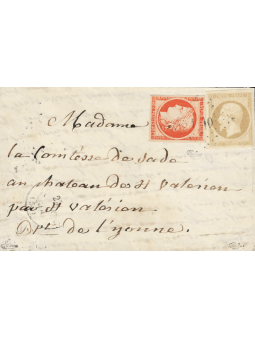 Madame
la Comtesse de Sade
au chateau de St Valérien
par St Valérien
Dpt de l'yonne.